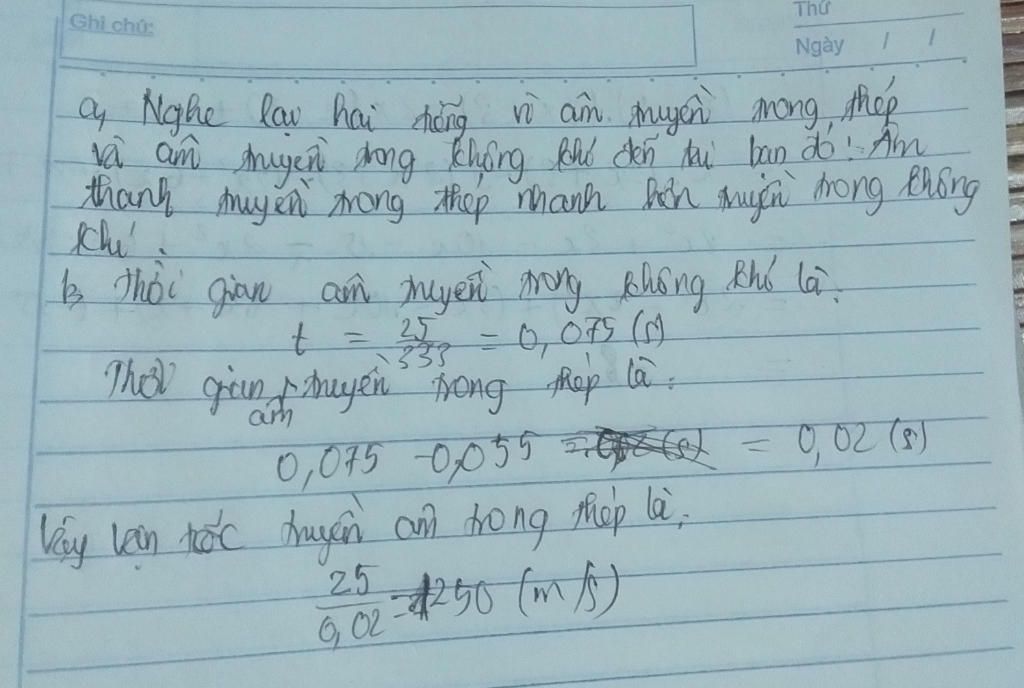 Ghi chú:
Thứ
Ngày / /
a, Nghe lại hai tiếng vì âm truyền trong thép
và âm truyền trong không khí đến tai bạn đó. Âm
thanh truyền trong thép nhanh hơn truyền trong không
khí.
b, Thời gian âm truyền trong không khí là:
t = 25/333 = 0,075 (s)
Thời gian âm truyền trong thép là:
0,075 - 0,055 = 0,02 (s)
Vậy vận tốc truyền âm trong thép là:
25/0,02 = 1250 (m/s)